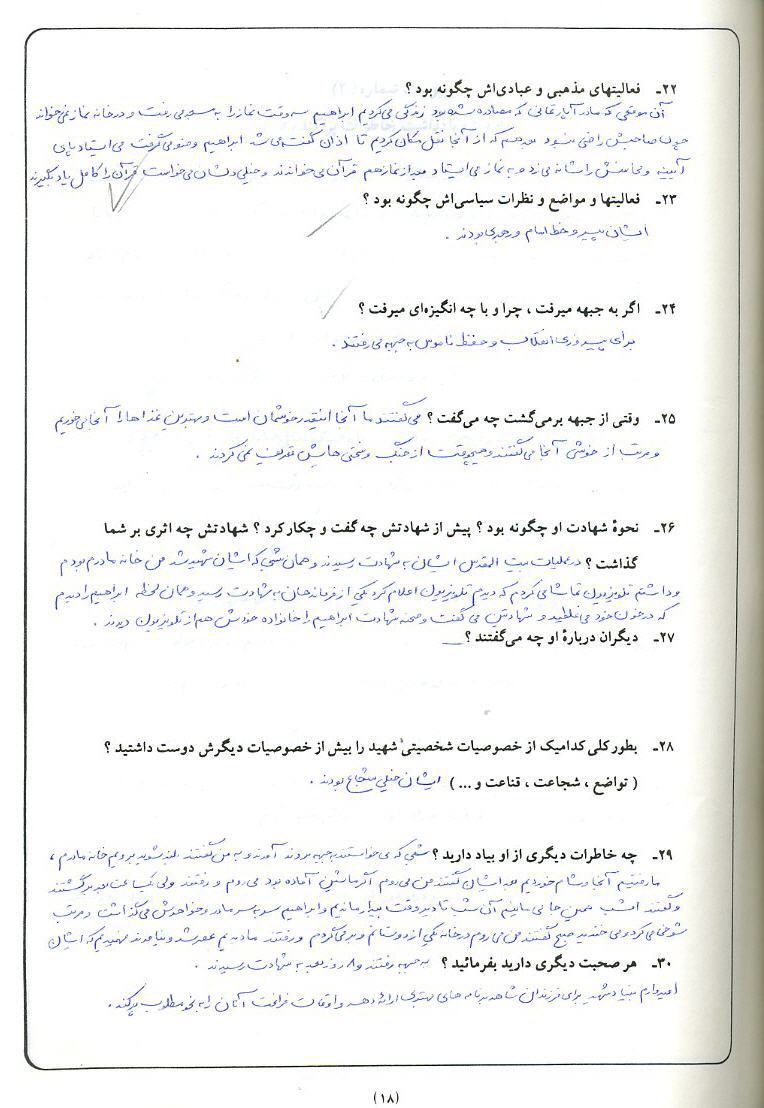 ۲۲ـ فعالیتهای مذهبی و عبادی‌اش چگونه بود ؟
آن موقعی که ما در آپارتمانی که مصادره شده بود زندگی می‌کردیم ابراهیم سه وقت نماز را به مسجد می رفت و در خانه نماز نمی‌خواند
چون صاحبش راضی نبود بعد هم که از آنجا نقل مکان کردیم تا اذان گفته می‌شد ابراهیم وضو می‌گرفت می ایستاد پای
آئینه و محاسنش را شانه می‌زد و به نماز می ایستاد بعد از نماز هم قرآن می‌خواندند و خیلی دلشان می‌خواست قرآن را کامل یاد بگیرند
۲۳ـ فعالیتها و مواضع و نظرات سیاسی‌اش چگونه بود ؟
ایشان پیرو خط امام و رهبری بودند .
۲۴ـ اگر به جبهه میرفت ، چرا و با چه انگیزه‌ای میرفت ؟
برای پیروزی انقلاب و حفظ ناموس به جبهه می رفتند .
۲۵ـ وقتی از جبهه برمی‌گشت چه می‌گفت ؟ می‌گفتند ما آنجا اینقدر خوشمان است و بهترین غذاها را آنجا می‌خوریم
و مرتب از خوشی آنجا می‌گفتند و هیچوقت از جنگ و سختی هایش تعریف نمی کردند .
۲۶ـ نحوهٔ شهادت او چگونه بود ؟ پیش از شهادتش چه گفت و چکار کرد ؟ شهادتش چه اثری بر شما
گذاشت ؟ در عملیات بیت المقدس ایشان به شهادت رسیدند و همان شبی که ایشان شهید شد من خانه مادرم بودم
و داشتم تلویزیون تماشا می کردم که دیدم تلویزیون اعلام کرد یکی از فرماندهان به شهادت رسید و همان لحظه ابراهیم را دیدم
که در خون خود می غلطید و شهادتین می گفت و صحنه شهادت ابراهیم را خانواده خودش هم از تلویزیون دیدند .
۲۷ـ دیگران دربارهٔ او چه می‌گفتند ؟
۲۸ـ بطور کلی کدامیک از خصوصیات شخصیتی شهید را بیش از خصوصیات دیگرش دوست داشتید ؟
( تواضع ، شجاعت ، قناعت و ... ) ایشان خیلی شجاع بودند .
۲۹ـ چه خاطرات دیگری از او بیاد دارید ؟ شبی که می خواستند به جبهه بروند آمدند و به من گفتند بلند شوید برویم خانه مادرم ،
ما رفتیم آنجا و شام خوردیم بعد ایشان گفتند من می روم اگر ماشین آماده بود می روم و رفتند ولی یکساعت بعد برگشتند
و گفتند امشب همین جا می مانیم آن شب تا دیر وقت بیدار ماندیم و ابراهیم سر به سر مادر و خواهرش می گذاشت و مرتب
شوخی می کرد و می خندید صبح گفتند من می روم در خانه یکی از دوستانم و برمی‌گردم و رفتند بعد عصر شد و نیامدند فهمیدیم که ایشان
به جبهه رفتند و ۸ روز بعد به شهادت رسیدند .
۳۰ـ هر صحبت دیگری دارید بفرمائید ؟
امیدوارم بنیاد شهید برای فرزندان شاهد برنامه های بهتری ارائه دهد و اوقات فراغت آنان را به نحو مطلوب پر کند .
(۱۸)